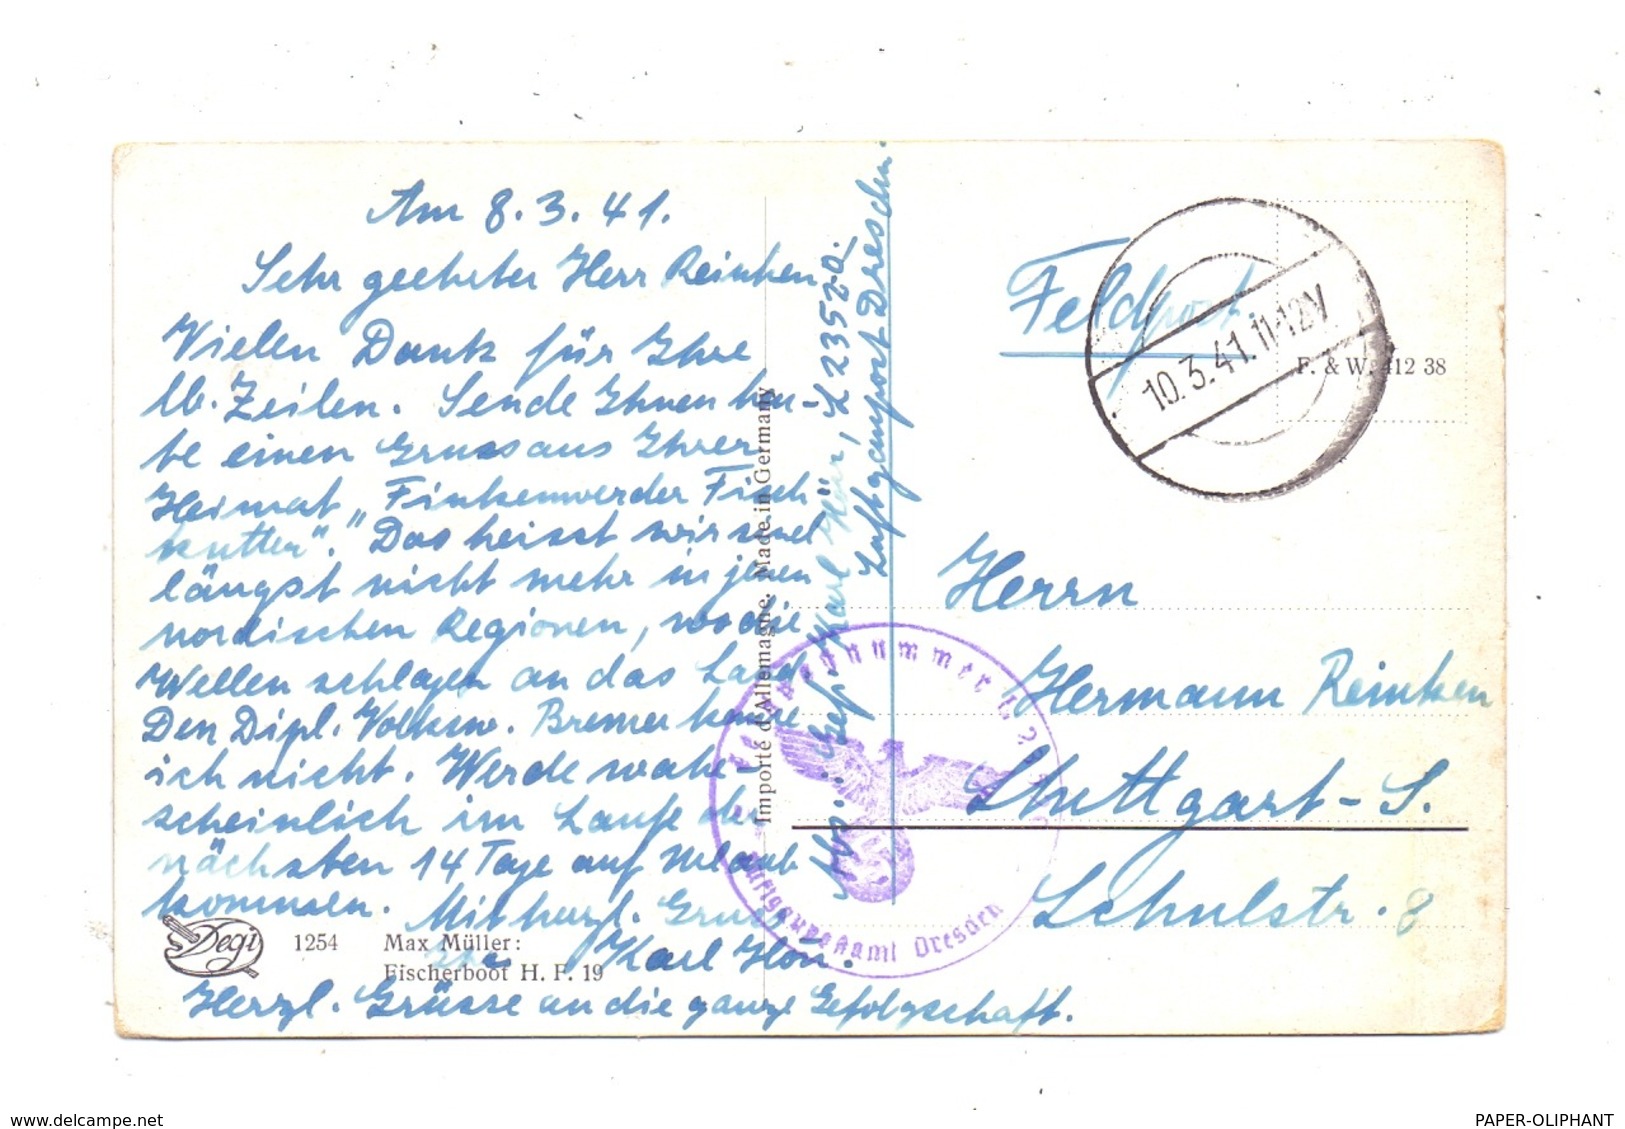 Am 8.3.41.
Sehr geehrter Herr Reinken
Vielen Dank für Ihre
lb. Zeilen. Sende Ihnen heu-
te einen Gruss aus Ihrer
Heimat „Finkenwerder Fisch
kutter". Das heisst wir sind
längst nicht mehr in jenen
nordischen Regionen, wo die
Wellen schlagen an das Land
Den Dipl. Volksw. Bremer kenne
ich nicht. Werde wahr-
scheinlich im Laufe der
nächsten 14 Tage auf Urlaub
kommen. Mit herzl. Gruss
Ihr Karl
Herzl. Grüsse an die ganze Gefolgschaft.
Degi 1254 Max Müller:
Fischerboot H. F. 19
Importé d'Allemagne. Made in Germany
Abs. Gefr. Karl L 23520
Luftgaupost Dresden
Feldpost
10.3.41.11-12V
F. & W. 412 38
Herrn
Hermann Reinken
Stuttgart-S.
Schulstr. 8
Luftgaupostamt Dresden
PAPER-OLIPHANT
delcampe.net
PAPER-OLIPHANT